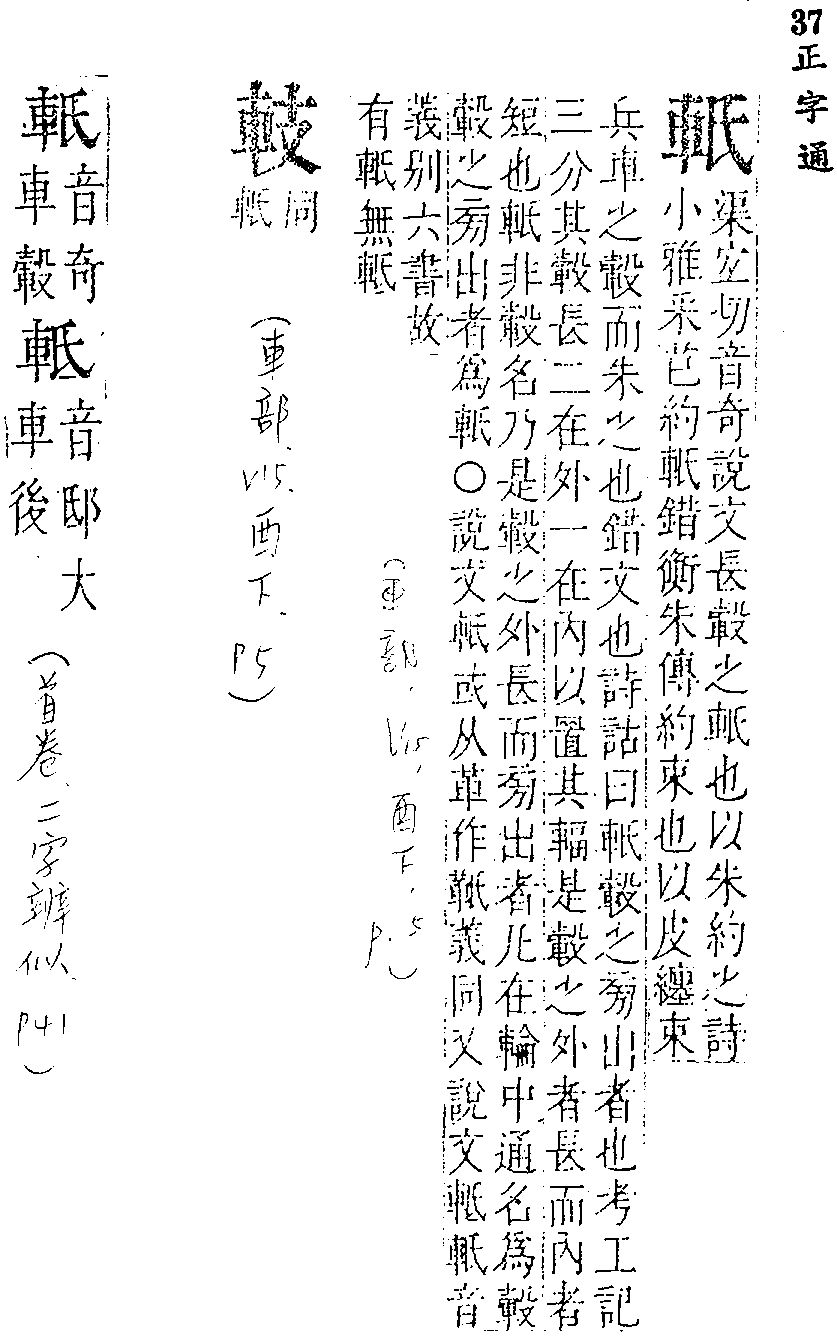 37 正字通
軝
渠宜切音奇說文長轂之軝也以朱約之詩
小雅采芑約軝錯衡朱傳約束也以皮纏束
兵車之轂而朱之也錯文也詩詁曰軝轂之旁出者也考工記
三分其轂長二在外一在內以置其輻是轂之外者長而內者
短也軝非轂名乃是轂之外長而旁出者凡在輪中通名為轂
轂之旁出者為軝○說文軝或从革作𩉬義同又說文軧軝音
義別六書故
有軝無軧
(車部, V15, 酉下, P.5)
䡋
同
軝
(車部, V15, 酉下, P5)
軝
音奇
車轂
軧
音邸大
車後
(首卷、二字辨似、P41)